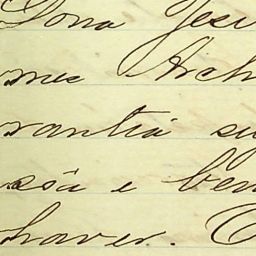 Dona Jesu
mes Arch
rantia su
sôa e ben
haver. O